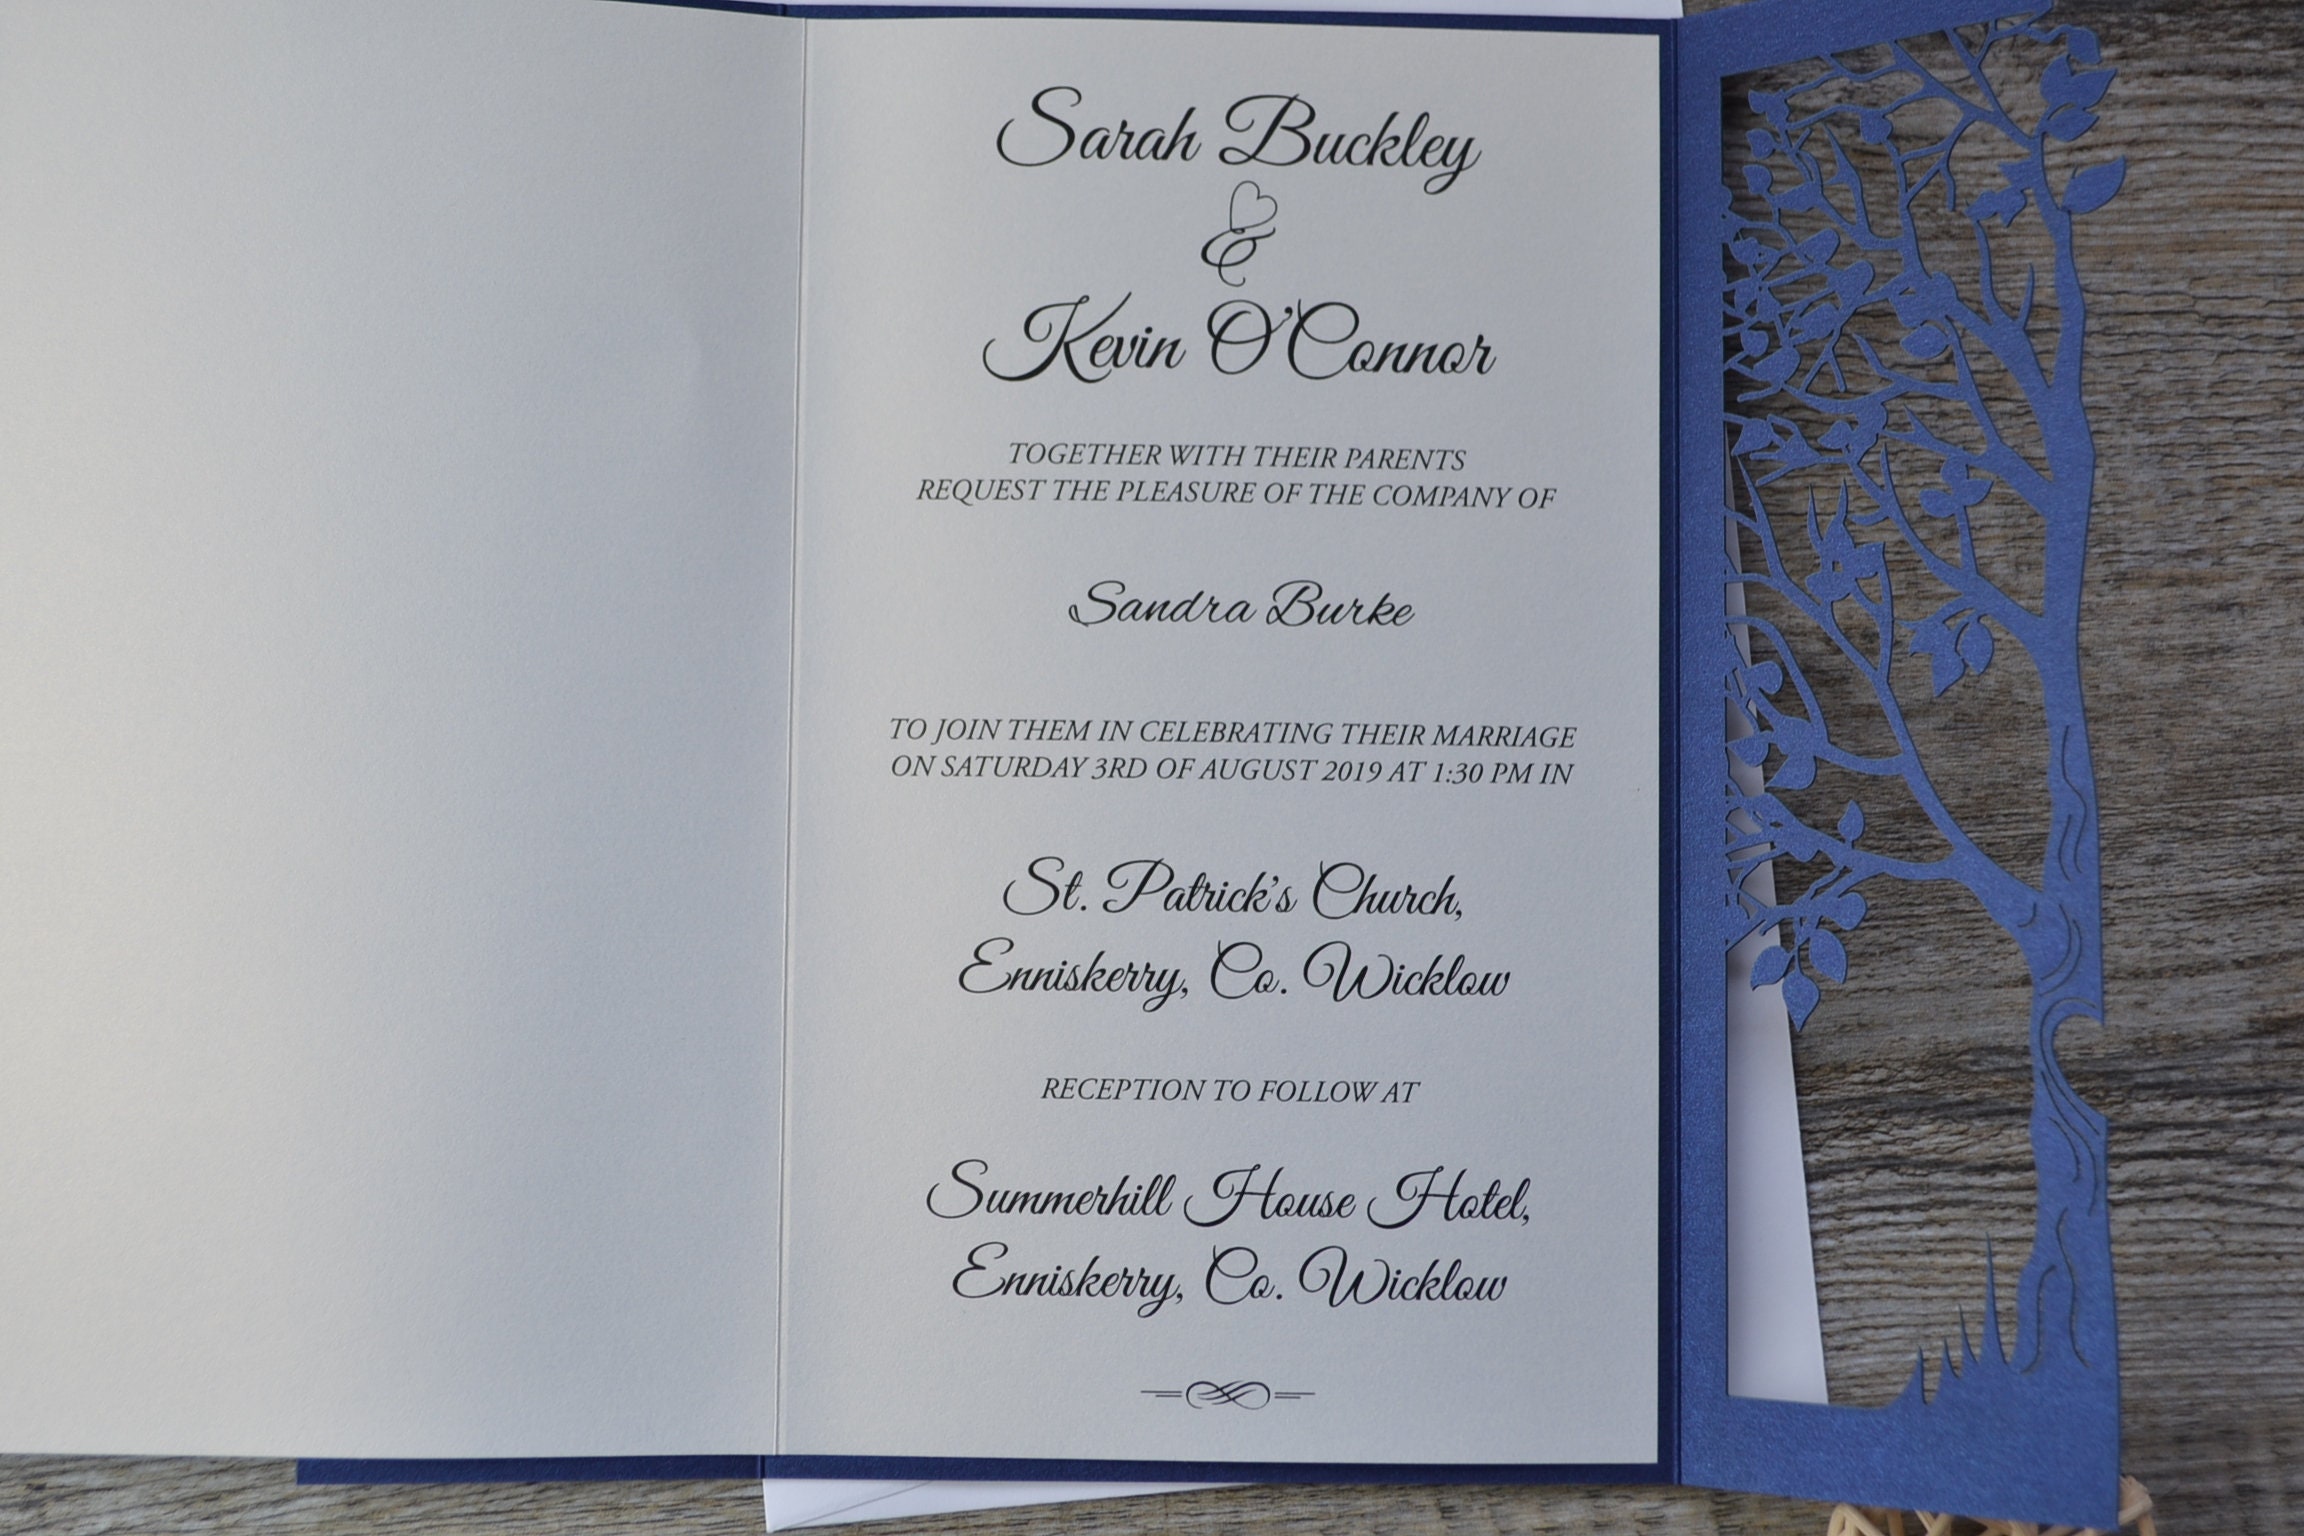 Sarah Buckley
&
Kevin O'Connor
TOGETHER WITH THEIR PARENTS
REQUEST THE PLEASURE OF THE COMPANY OF
Sandra Burke
TO JOIN THEM IN CELEBRATING THEIR MARRIAGE
ON SATURDAY 3RD OF AUGUST 2019 AT 1:30 PM IN
St. Patrick's Church,
Enniskerry, Co. Wicklow
RECEPTION TO FOLLOW AT
Summerhill House Hotel,
Enniskerry, Co. Wicklow